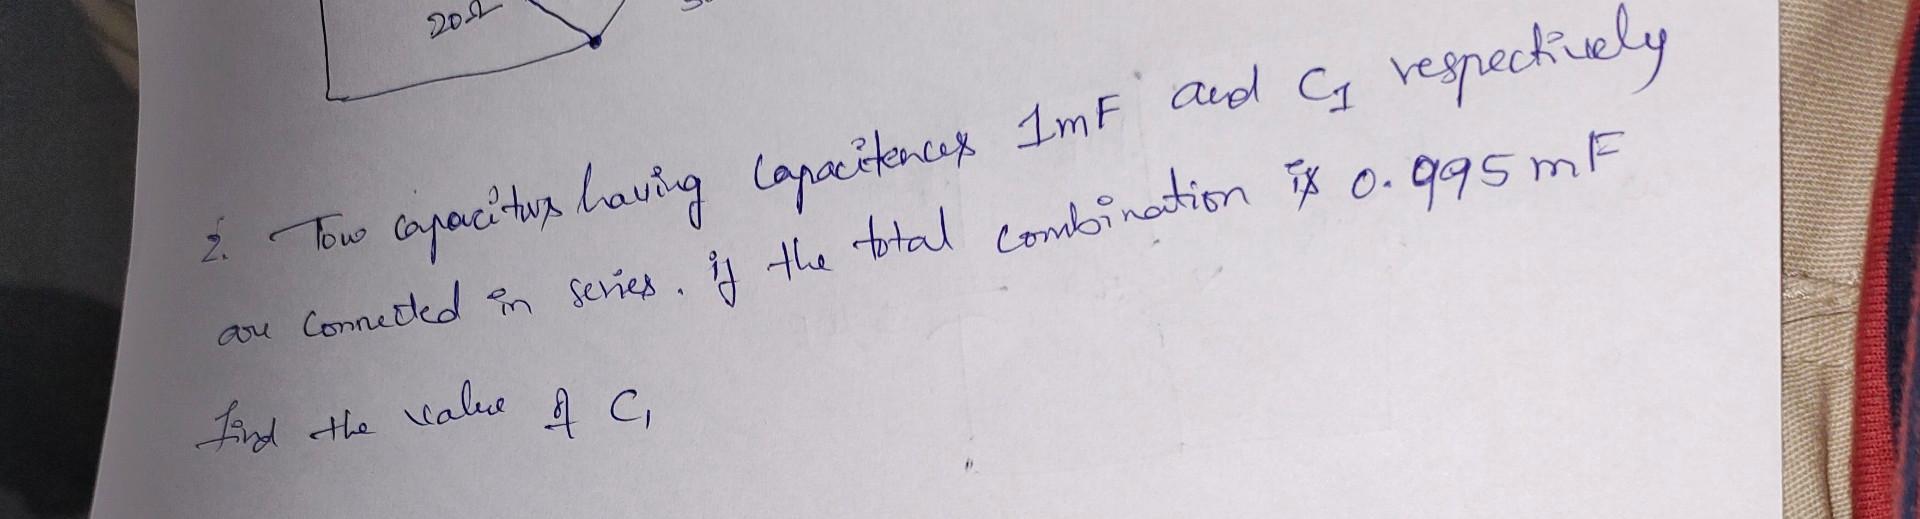 20Ω
2. Tow capacitors having Capacitences 1mF and C1 respectively
are Connected in series. if the total combination is 0.995 mF
find the value of C1